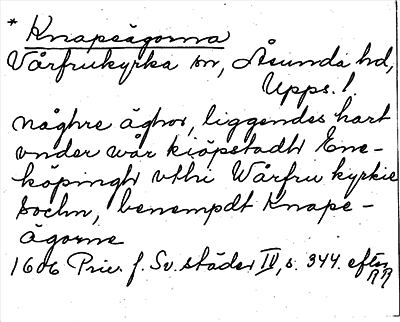 * Knapeägorna
Vårfrukyrka sn, Åsunda hd,
Upps. l.
någhre äghor, liggendes hart
vnder wår kiöpstadh Ene-
köpingh vthi Wårfru kyrkie
sochn, benempdt Knape-
ägorne
1606 Priv. f. Sv. städer IV, s. 344. efter